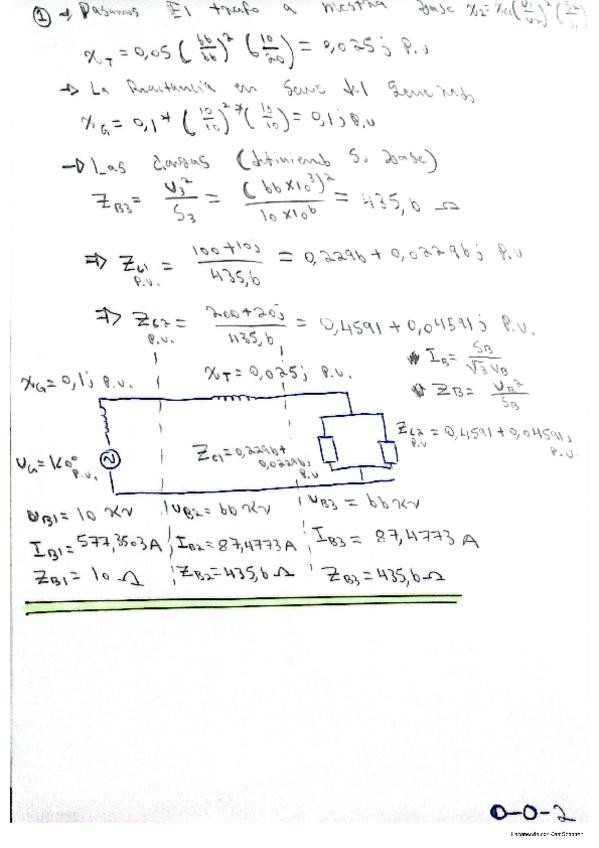 ① → Pasamos El trafo a nuestra base X₂=X₁(U₁/U₂)²(S₂/S₁)
X_T = 0,05 (66/66)² (10/20) = 0,025j P.u
→ La Reactancia en Serie del Generador
X_G = 0,1 * (10/10)² * (10/10) = 0,1j P.u
→ Las Cargas (definiendo S. base)
Z_B3 = U₃²/S₃ = (66x10³)²/10x10⁶ = 435,6 Ω
⇒ Z_C1 P.U. = 100+10j/435,6 = 0,2296 + 0,02296j P.U
⇒ Z_C2 P.U. = 200+20j/435,6 = 0,4591 + 0,04591j P.U.
* I_B = S_B/√3 U_B
* Z_B = U_B²/S_B
X_G = 0,1j P.U. X_T = 0,025j P.U.
U_G = 1∠0° P.U. Z_C1 = 0,2296+0,0229bj P.U Z_C2 P.U = 0,4591+0,04591j P.U.
U_B1 = 10 KV U_B2 = 66 KV U_B3 = 66 KV
I_B1 = 577,3503 A I_B2 = 87,4773 A I_B3 = 87,4773 A
Z_B1 = 10 Ω Z_B2 = 435,6 Ω Z_B3 = 435,6 Ω
0-0-2
Escaneado con CamScanner